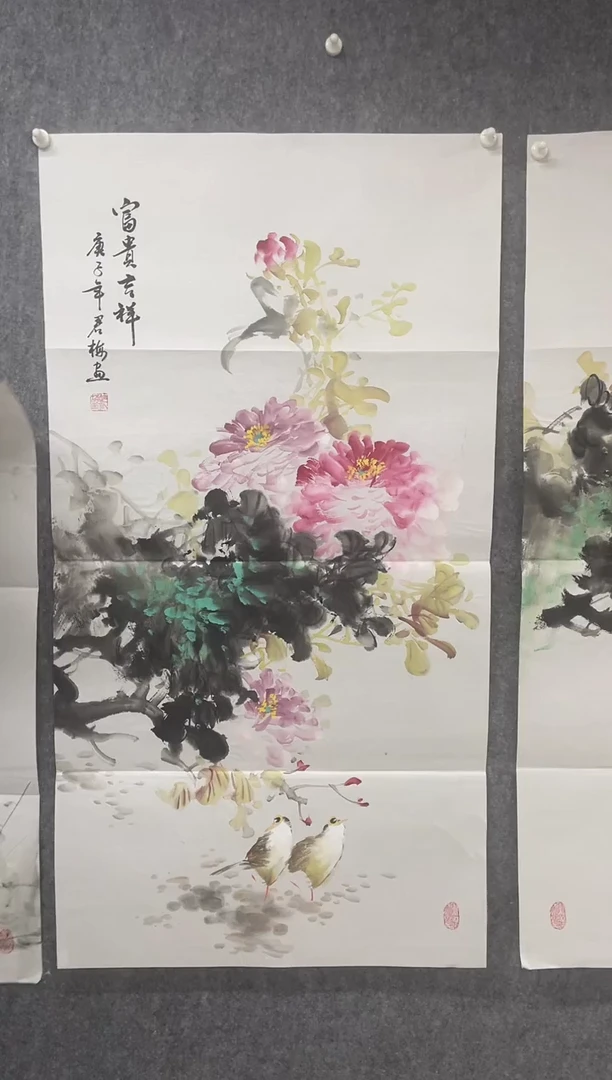 富貴吉祥
庚子年君梅画